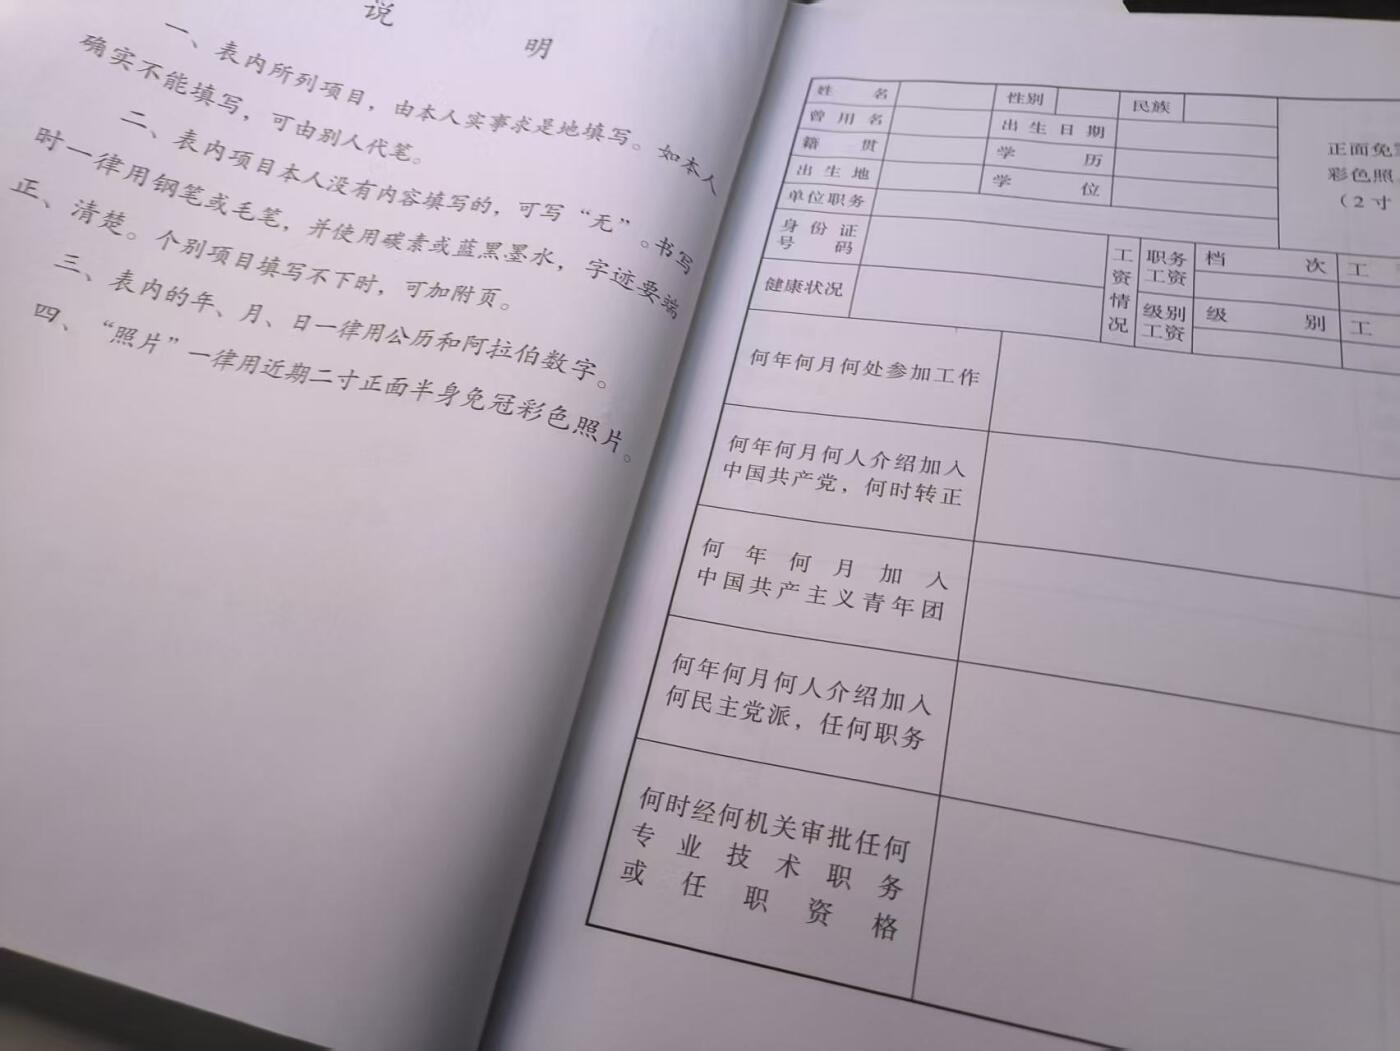 说 明
一、表内所列项目，由本人实事求是地填写。如本人
确实不能填写，可由别人代笔。
二、表内项目本人没有内容填写的，可写“无”。书写
时一律用钢笔或毛笔，并使用碳素或蓝黑墨水，字迹要端
正、清楚。个别项目填写不下时，可加附页。
三、表内的年、月、日一律用公历和阿拉伯数字。
四、“照片”一律用近期二寸正面半身免冠彩色照片。
姓 名 性别 民族
曾用名 出生日期
籍 贯 学 历
出生地 学 位
单位职务
正面免
彩色照
（2寸
身份证
号 码
健康状况
工资情况
职务
工资
档 次 工
级别
工资
级 别 工
何年何月何处参加工作
何年何月何人介绍加入
中国共产党，何时转正
何年何月加入
中国共产主义青年团
何年何月何人介绍加入
何民主党派，任何职务
何时经何机关审批任何
专业技术职务
或任职资格